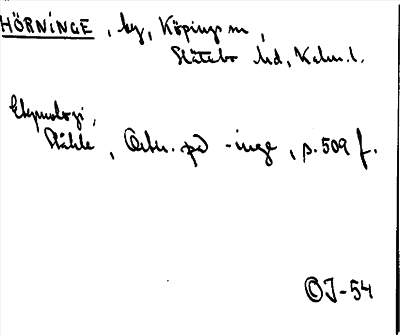 HÖRNINGE, by, Köpings sn,
Slättbo hd, Kalm. l.
Etymologi,
Ståhle, Ortn. på -inge, s. 509 f.
OJ-54